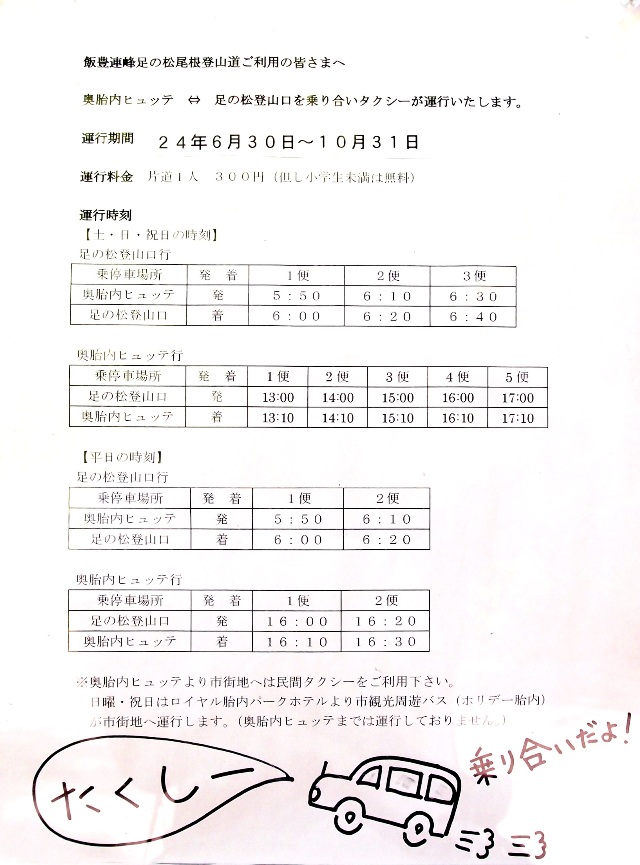 飯豊連峰足の松尾根登山道ご利用の皆さまへ
奥胎内ヒュッテ ⇔ 足の松登山口を乗り合いタクシーが運行いたします。
運行期間 24年6月30日～10月31日
運行料金 片道1人 300円（但し小学生未満は無料）
運行時刻
【土・日・祝日の時刻】
足の松登山口行
乗停車場所 発 着 1便 2便 3便
奥胎内ヒュッテ 発 5：50 6：10 6：30
足の松登山口 着 6：00 6：20 6：40
奥胎内ヒュッテ行
乗停車場所 発 着 1便 2便 3便 4便 5便
足の松登山口 発 13:00 14:00 15:00 16:00 17:00
奥胎内ヒュッテ 着 13:10 14:10 15:10 16:10 17:10
【平日の時刻】
足の松登山口行
乗停車場所 発 着 1便 2便
奥胎内ヒュッテ 発 5：50 6：10
足の松登山口 着 6：00 6：20
奥胎内ヒュッテ行
乗停車場所 発 着 1便 2便
足の松登山口 発 16：00 16：20
奥胎内ヒュッテ 着 16：10 16：30
※奥胎内ヒュッテより市街地へは民間タクシーをご利用下さい。
日曜・祝日はロイヤル胎内パークホテルより市観光周遊バス（ホリデー胎内）
が市街地へ運行します。（奥胎内ヒュッテまでは運行しておりません。）
たくしー
乗り合いだよ！